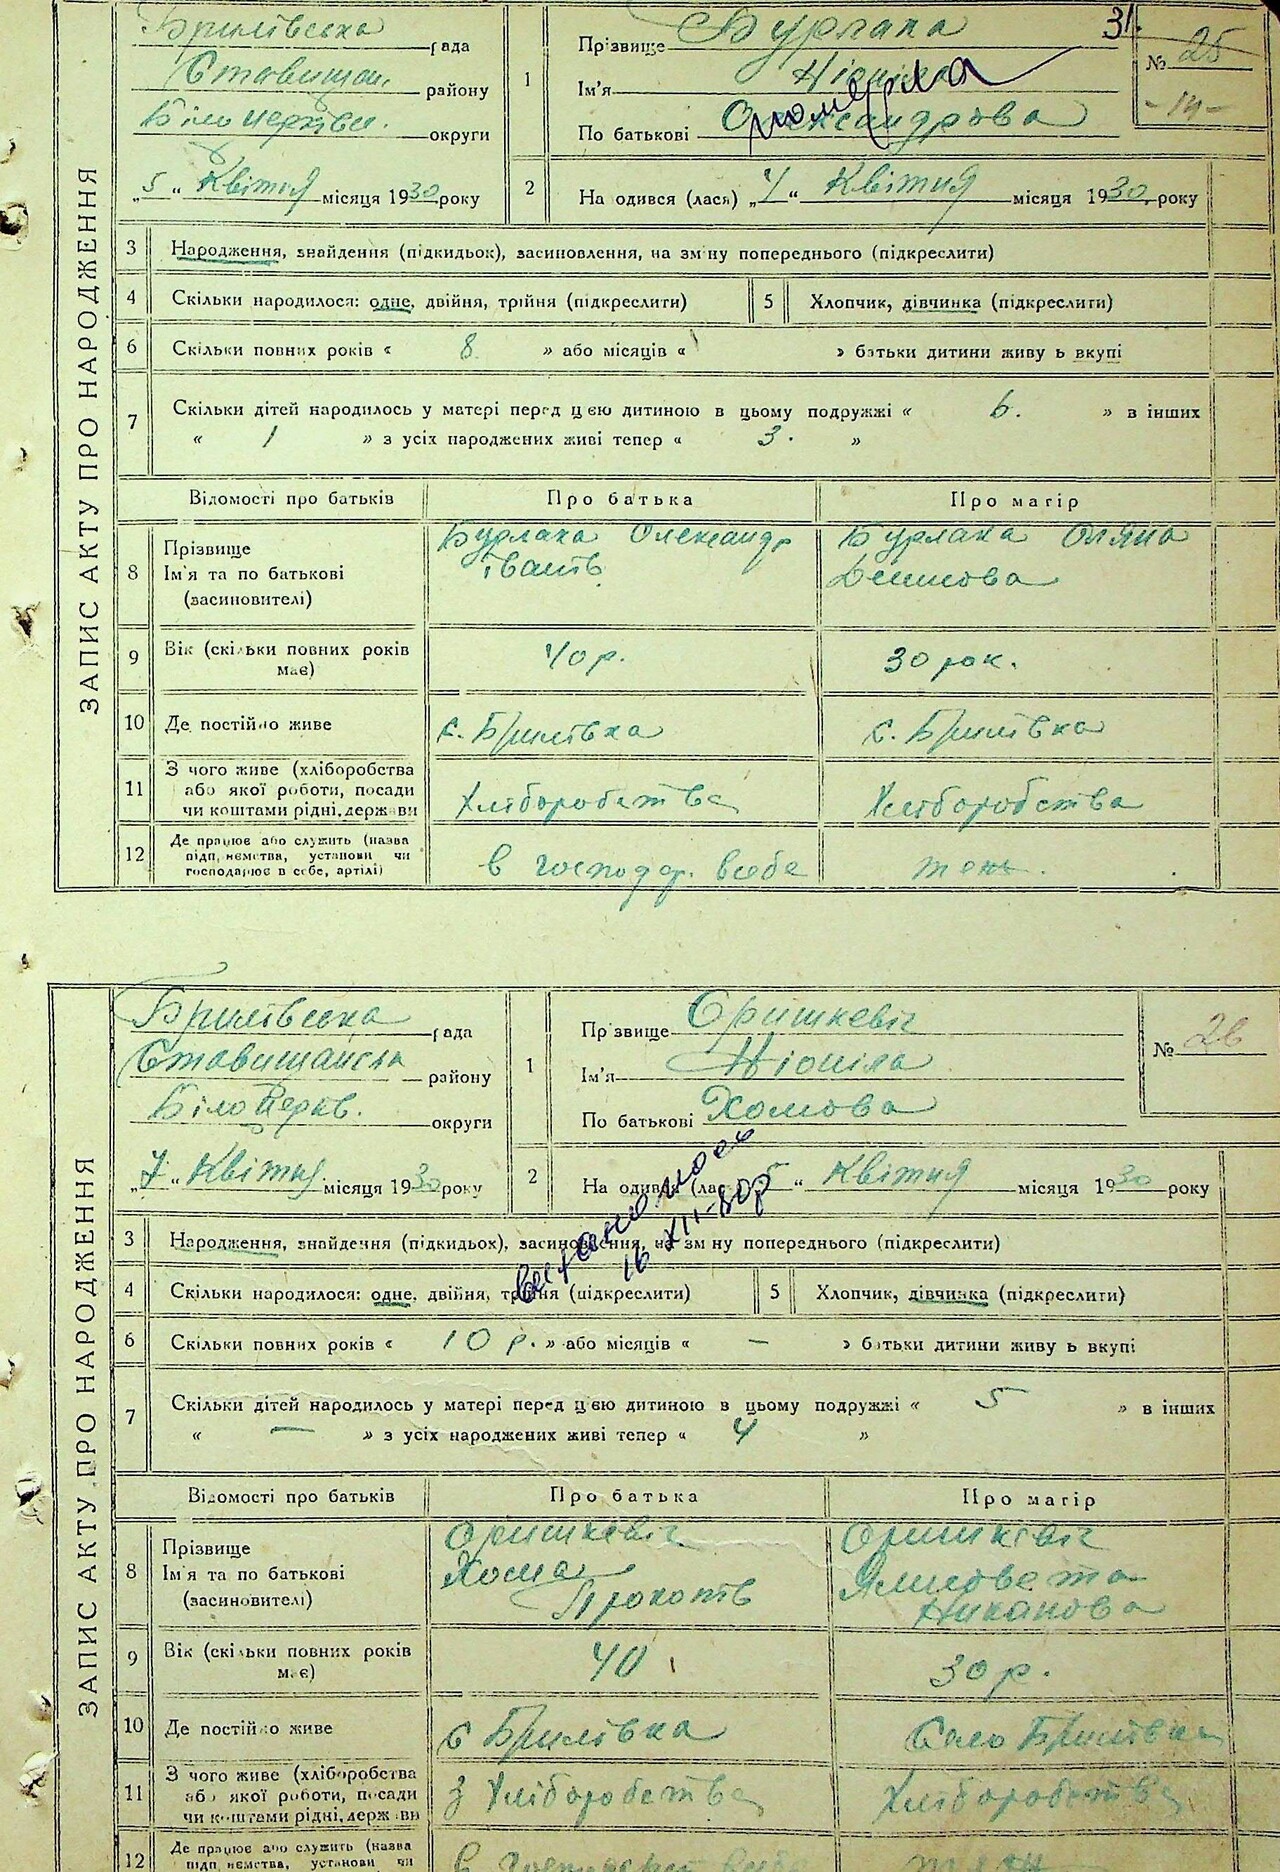 31.
Брилівська рада
Ставищан. району
Білоцерківськ. округи
„5“ Квітня місяця 1930 року
1
Прізвище Бурлака
Ім'я Ніоніла
По батькові Олександрова
померла
№ 25
- 14 -
2
На одився (лася) „4“ Квітня місяця 1930 року
ЗАПИС АКТУ ПРО НАРОДЖЕННЯ
3 Народження, знайдення (підкидьок), засиновлення, на зм ну попереднього (підкреслити)
4 Скільки народилося: одне, двійня, трійня (підкреслити)
5 Хлопчик, дівчинка (підкреслити)
6 Скільки повних років « 8 » або місяців « » батьки дитини живу ь вкупі
7 Скільки дітей народилось у матері перед цією дитиною в цьому подружжі « 6. » в інших
« 1 » з усіх народжених живі тепер « 3. »
Відомості про батьків Про батька Про матір
8 Прізвище
Ім'я та по батькові
(засиновителі)
Бурлака Олександр
Іванів
Бурлака Оляна
Денисова
9 Вік (скільки повних років
має)
40 р.
30 рок.
10 Де постійно живе с. Брилівка с. Брилівка
11 З чого живе (хліборобства
або якої роботи, посади
чи коштами рідні, держави
Хліборобства
Хліборобства
12 Де працює або служить (назва
підприємства, установи чи
господарює в себе, артілі)
в господар. всебе
Брилівська рада
Ставищанськ району
Білоцеркв. округи
„7“ Квітня місяця 1930 року
1
Прізвище Оришкевіч
Ім'я Ніоніла
По батькові Хомова
№ 26
2
На одився (лас „5“ Квітня місяця 1930 року
16 XII-80р
ЗАПИС АКТУ ПРО НАРОДЖЕННЯ
3 Народження, знайдення (підкидьок), засиновлення, на зм ну попереднього (підкреслити)
4 Скільки народилося: одне, двійня, трійня (підкреслити)
5 Хлопчик, дівчинка (підкреслити)
6 Скільки повних років « 10 р. » або місяців « — » батьки дитини живу ь вкупі
7 Скільки дітей народилось у матері перед цією дитиною в цьому подружжі « 5 » в інших
« — » з усіх народжених живі тепер « 4 »
Відомості про батьків Про батька Про матір
8 Прізвище
Ім'я та по батькові
(засиновителі)
Оришкевіч
Хома
Прокопів
Оришкевіч
Ялисовета
Никанова
9 Вік (скільки повних років
має)
40
30 р.
10 Де постійно живе с Брилівка Село Брилівка
11 З чого живе (хліборобства
або якої роботи, посади
чи коштами рідні, держави
З Хліборобства
Хліборобства
12 Де працює або служить (назва
підприємства, установи чи